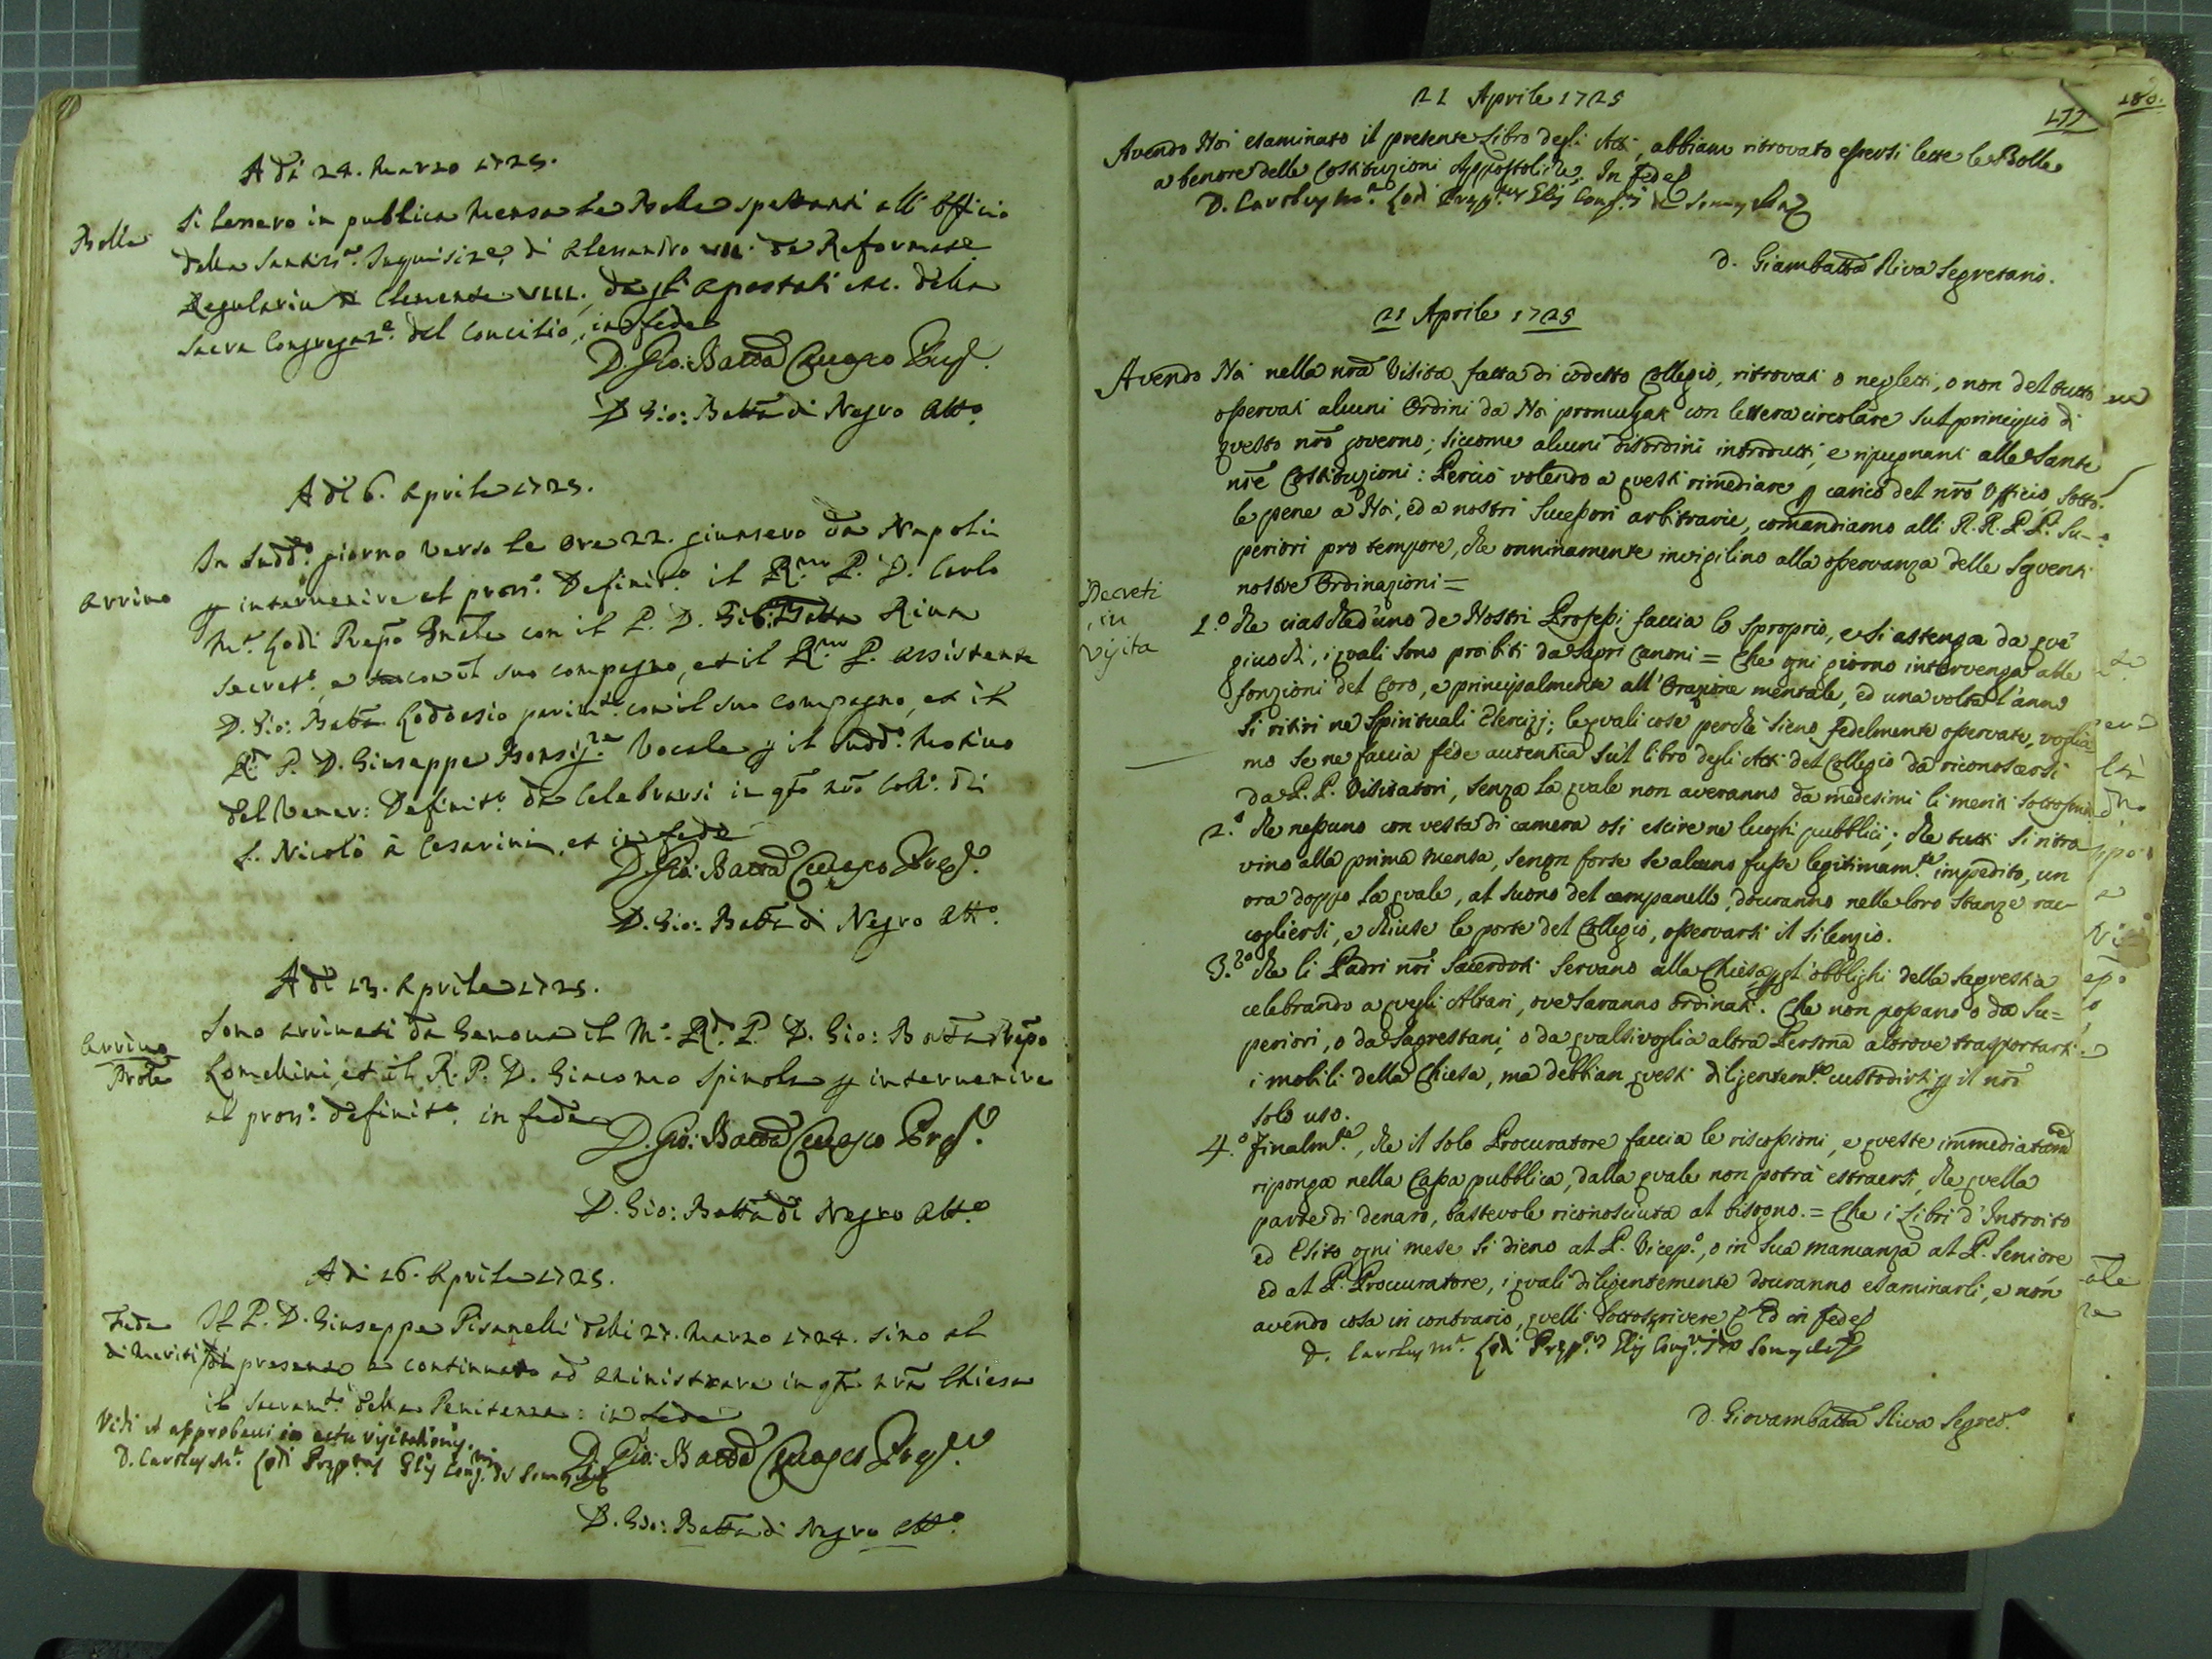 A di 24. Marzo 1725.
Bolle
Si lessero in publica Mensa le Bolle spettanti all' Officio
della Santiss.ª Inquisiz.e, di Alessandro VII. de Reformat.e
Regularium Clemente VIII. degl' Apostati etc. della
Sacra Congregaz.e del Concilio, in fede
D. Gio: Batta Prep.
D Gio: Batta di Negro Att.º
A di 6. Aprile 1725.
arrivo
In sudd.º giorno verso le ore 22. giunsero da Napoli
p intervenire al pross.º Definit.º il R.mo P. D. Carlo
M.ª Lodi Prep.o Gnãle con il P. D. Gio: Batta Riva
Secret.º e con il suo compagno, et il R.mo P. Assistente
D. Gio: Batta Lodovasio parim.te con il suo compagno, et il
R. P. D. Giuseppe Vocale p il sudd.º motivo
del Vener: Definit.º da Celebrarsi in qto nro Coll.º di
S. Nicolò à Cesarini, et in fede
D. Gio: Batta Prep.
D. Gio: Batta di Negro Att.º
A di 13. Aprile 1725.
arrivo
Prõle
Sono arrivati da Genova il M.º R.do P. D. Gio: Batta Prepo
Lomellini, et il R. P. D. Giacomo Spinola p intervenire
al pross.º definit.º in fede
D. Gio: Batta Prep.
D. Gio: Batta di Negro Att.º
A di 16. Aprile 1725.
Fede
di Meriti
Il P. D. Giuseppe Pisanelli dalli 27. Marzo 1724. sino al
dì presente a continuato ad Aministrare in qta nra Chiesa
il Sacram.to della Penitenza: in fede
Vidi et approbavi in actu visitationis.
D. Carolus M.ª Lodi Prep.tus Glis Cong.nis de Somascha
D. Gio: Batta Prep.
D. Gio: Batta di Negro Att.º
21 Aprile 1725
177
180.
Avendo Noi esaminato il presente Libro degli Atti, abbiam ritrovato essersi lette le Bolle
a tenore delle Costituzioni Appostoliche. In fede
D. Carolus M.ª Lodi Prep.tus Glis Cong.nis de Somascha
D. Giambatta Riva Segretario.
21 Aprile 1725
Avendo Noi nella nrã Visita fatta di codetto Collegio, ritrovati o negletti, o non del tutto
osservati alcuni Ordini da Noi promulgati con lettera circolare sul principio di
questo nrõ governo; siccome alcuni disordini introdutti, e ripugnanti alle Sante
nrẽ Costituzioni: Perciò volendo a questi rimediare p carico del nrõ Officio, sotto
le pene a Noi, ed a nostri Successori arbitrarie, comandiamo alli R.R.P.P. Su-
periori pro tempore, che onninamente invigilino alla osservanza delle sguenti
nostre Ordinazioni =
Decreti
in
Visita
1.º Che ciascheduno de Nostri Professi faccia lo sproprio, e si astenga da que'
giuochi, i quali sono proibiti da sagri Canoni = Che ogni giorno intervenga alle
fonzioni del Coro, e principalmente all' Orazione mentale, ed una volta l'anno
si ritiri ne Spirituali Esercizj; le quali cose perchè sieno fedelmente osservate, voglia
mo se ne faccia fede autentica sul libro degli Atti del Collegio da riconoscersi
da P.P. Visitatori, senza la quale non averanno da medesimi li meriti sottoscritti
2.º Che nessuno con vesta di camera osi escire ne luoghi pubblici; Che tutti si ritro
vino alla prima mensa, senon forse se alcuno fusse legitimam.te impedito, un
ora doppo la quale, al suono del campanello, dovranno nelle loro stanze rac-
cogliersi, e chiuse le porte del Collegio, osservarsi il silenzio.
3.º Che li Padri nrĩ Sacerdoti servano alla Chiesa p gl' obblighi della Sagrestia
celebrando a quegli Altari, ove saranno ordinati. Che non possano o da Su=
periori, o da Sagrestani, o da qualsivoglia altra Persona altrove trasportarsi
i mobili della Chiesa, ma debbian questi diligentem.te custodirsi p il nrõ
solo uso.
4.º Finalm.te, che il solo Procuratore faccia le riscossioni, e queste immediatame
riponga nella Cassa pubblica, dalla quale non potrà estraersi, che quella
parte di denaro, bastevole riconosciuta al bisogno. = Che i Libri d' Introito
ed Esito ogni mese si dieno al P. Vicep.º, o in sua mancanza al P. Seniore
ed al P. Proccuratore, i quali diligentemente dovranno esaminarli, e non
avendo cosa in contrario, quelli sottoscrivere Ed in fede
D. Carolus M.ª Lodi Prep.tus Glis Cong.nis de Somascha
D. Giovambatta Riva Segret.º